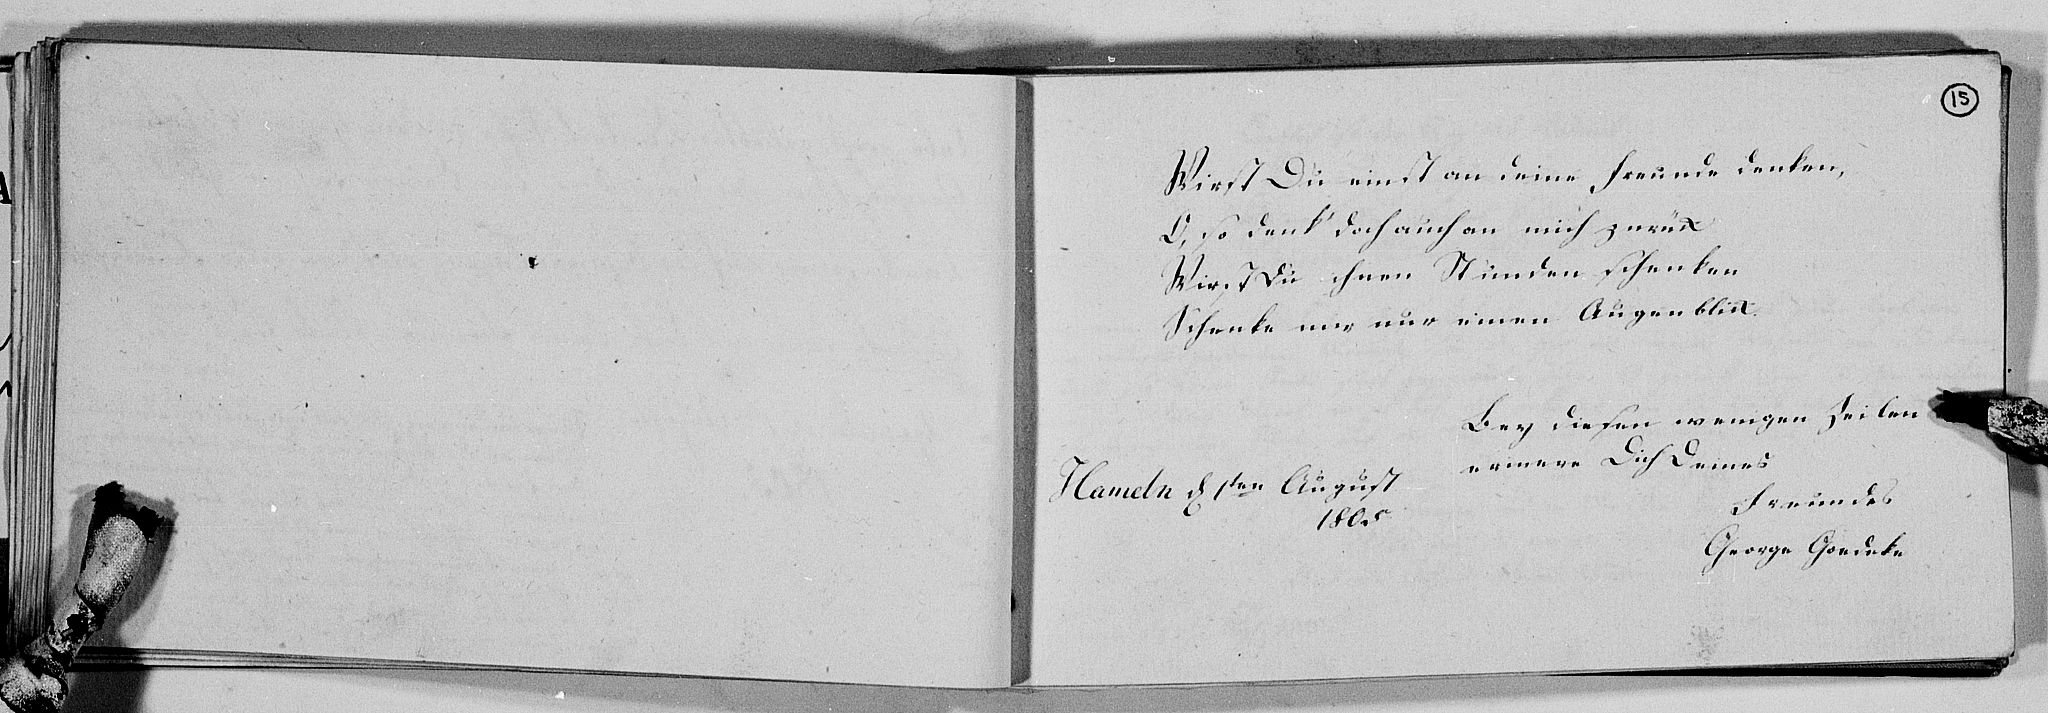 15
Wirst Du einst an deine Freunde denken,
O, so denk' doch auch an mich zurük
Wirst Du ihnen Stunden schenken
Schenke mir nur einen Augenblik.
Bey diesen wenigen Zeilen
erinnere Dich Deines
Freundes
George Goedeke
Hameln d 1ten August
1805